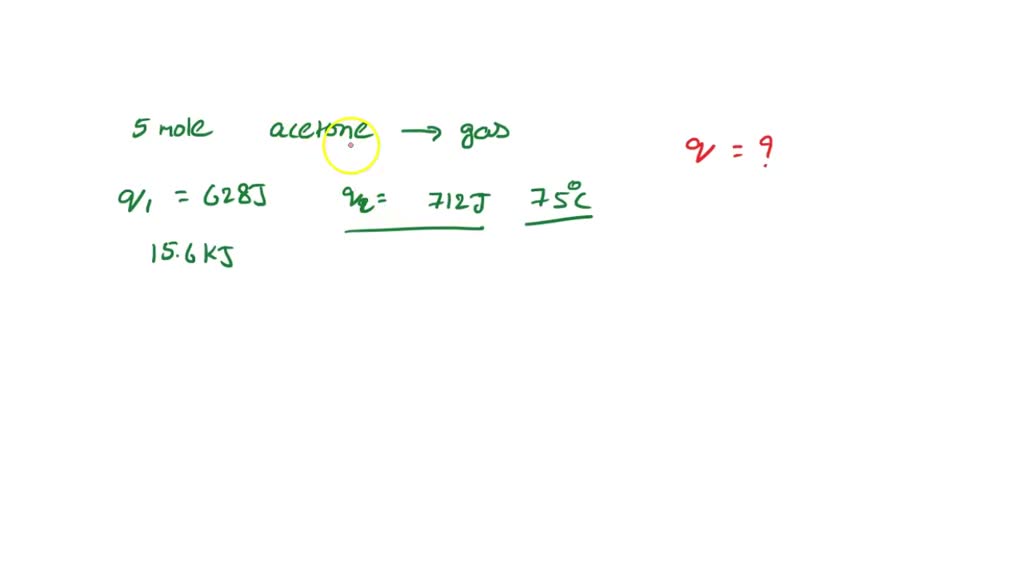 5 mole acetone → gas
q = ?
q₁ = 628J q₂ = 712J 75°C
15.6 KJ